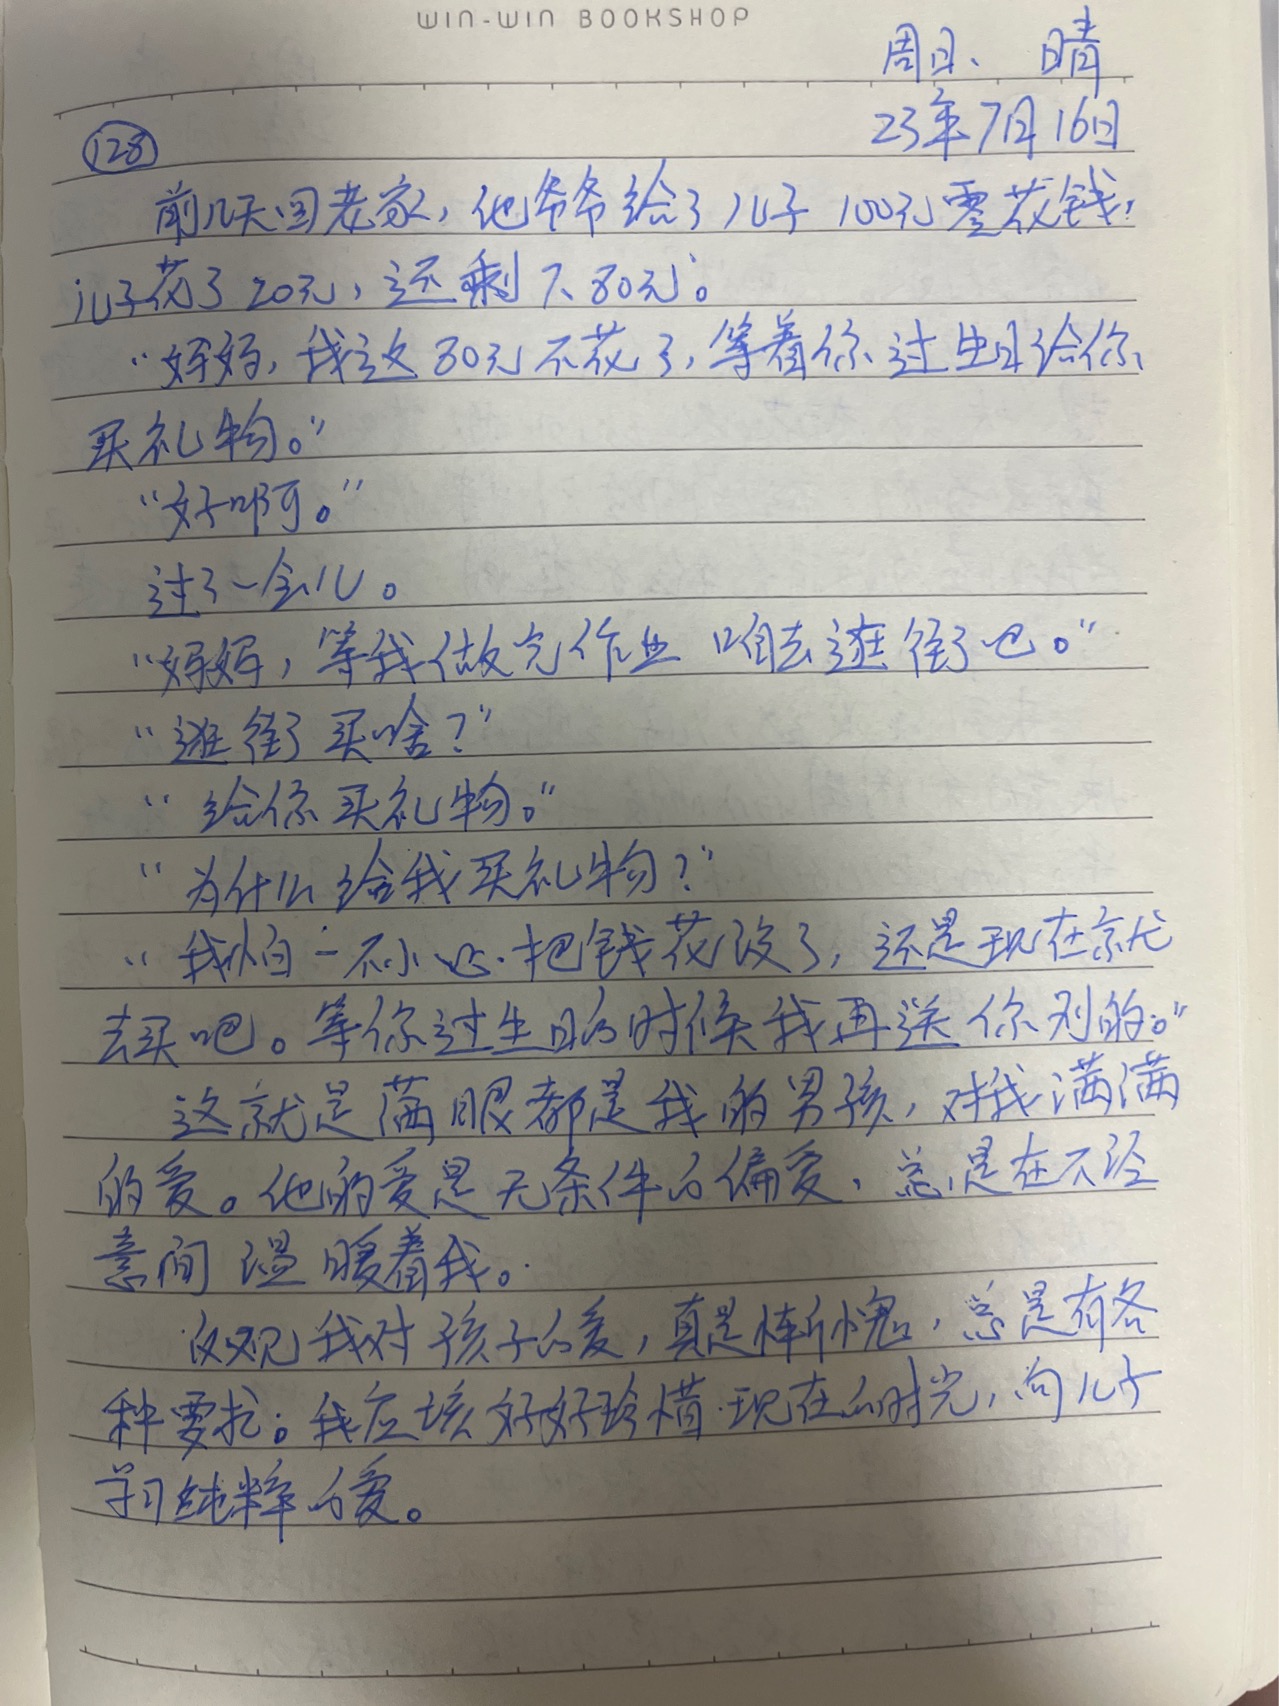 WIN-WIN BOOKSHOP
周日、 晴
23年7月16日
128
前几天回老家，他爷爷给了儿子100元零花钱，
儿子花了20元，还剩下80元。
“妈妈，我这80元不花了，等着你过生日给你
买礼物。”
“好啊。”
过了一会儿。
“妈妈，等我做完作业咱去逛街了吧。”
“逛街了买啥？”
“给你买礼物。”
“为什么给我买礼物？”
“我怕一不小心把钱花没了，还是现在就
去买吧。等你过生日的时候我再送你别的。”
这就是满眼都是我的男孩，对我满满
的爱。他的爱是无条件的偏爱，总是在不经
意间温暖着我。
反观我对孩子的爱，真是惭愧，总是有各
种要求。我应该好好珍惜现在的时光，向儿子
学习纯粹的爱。